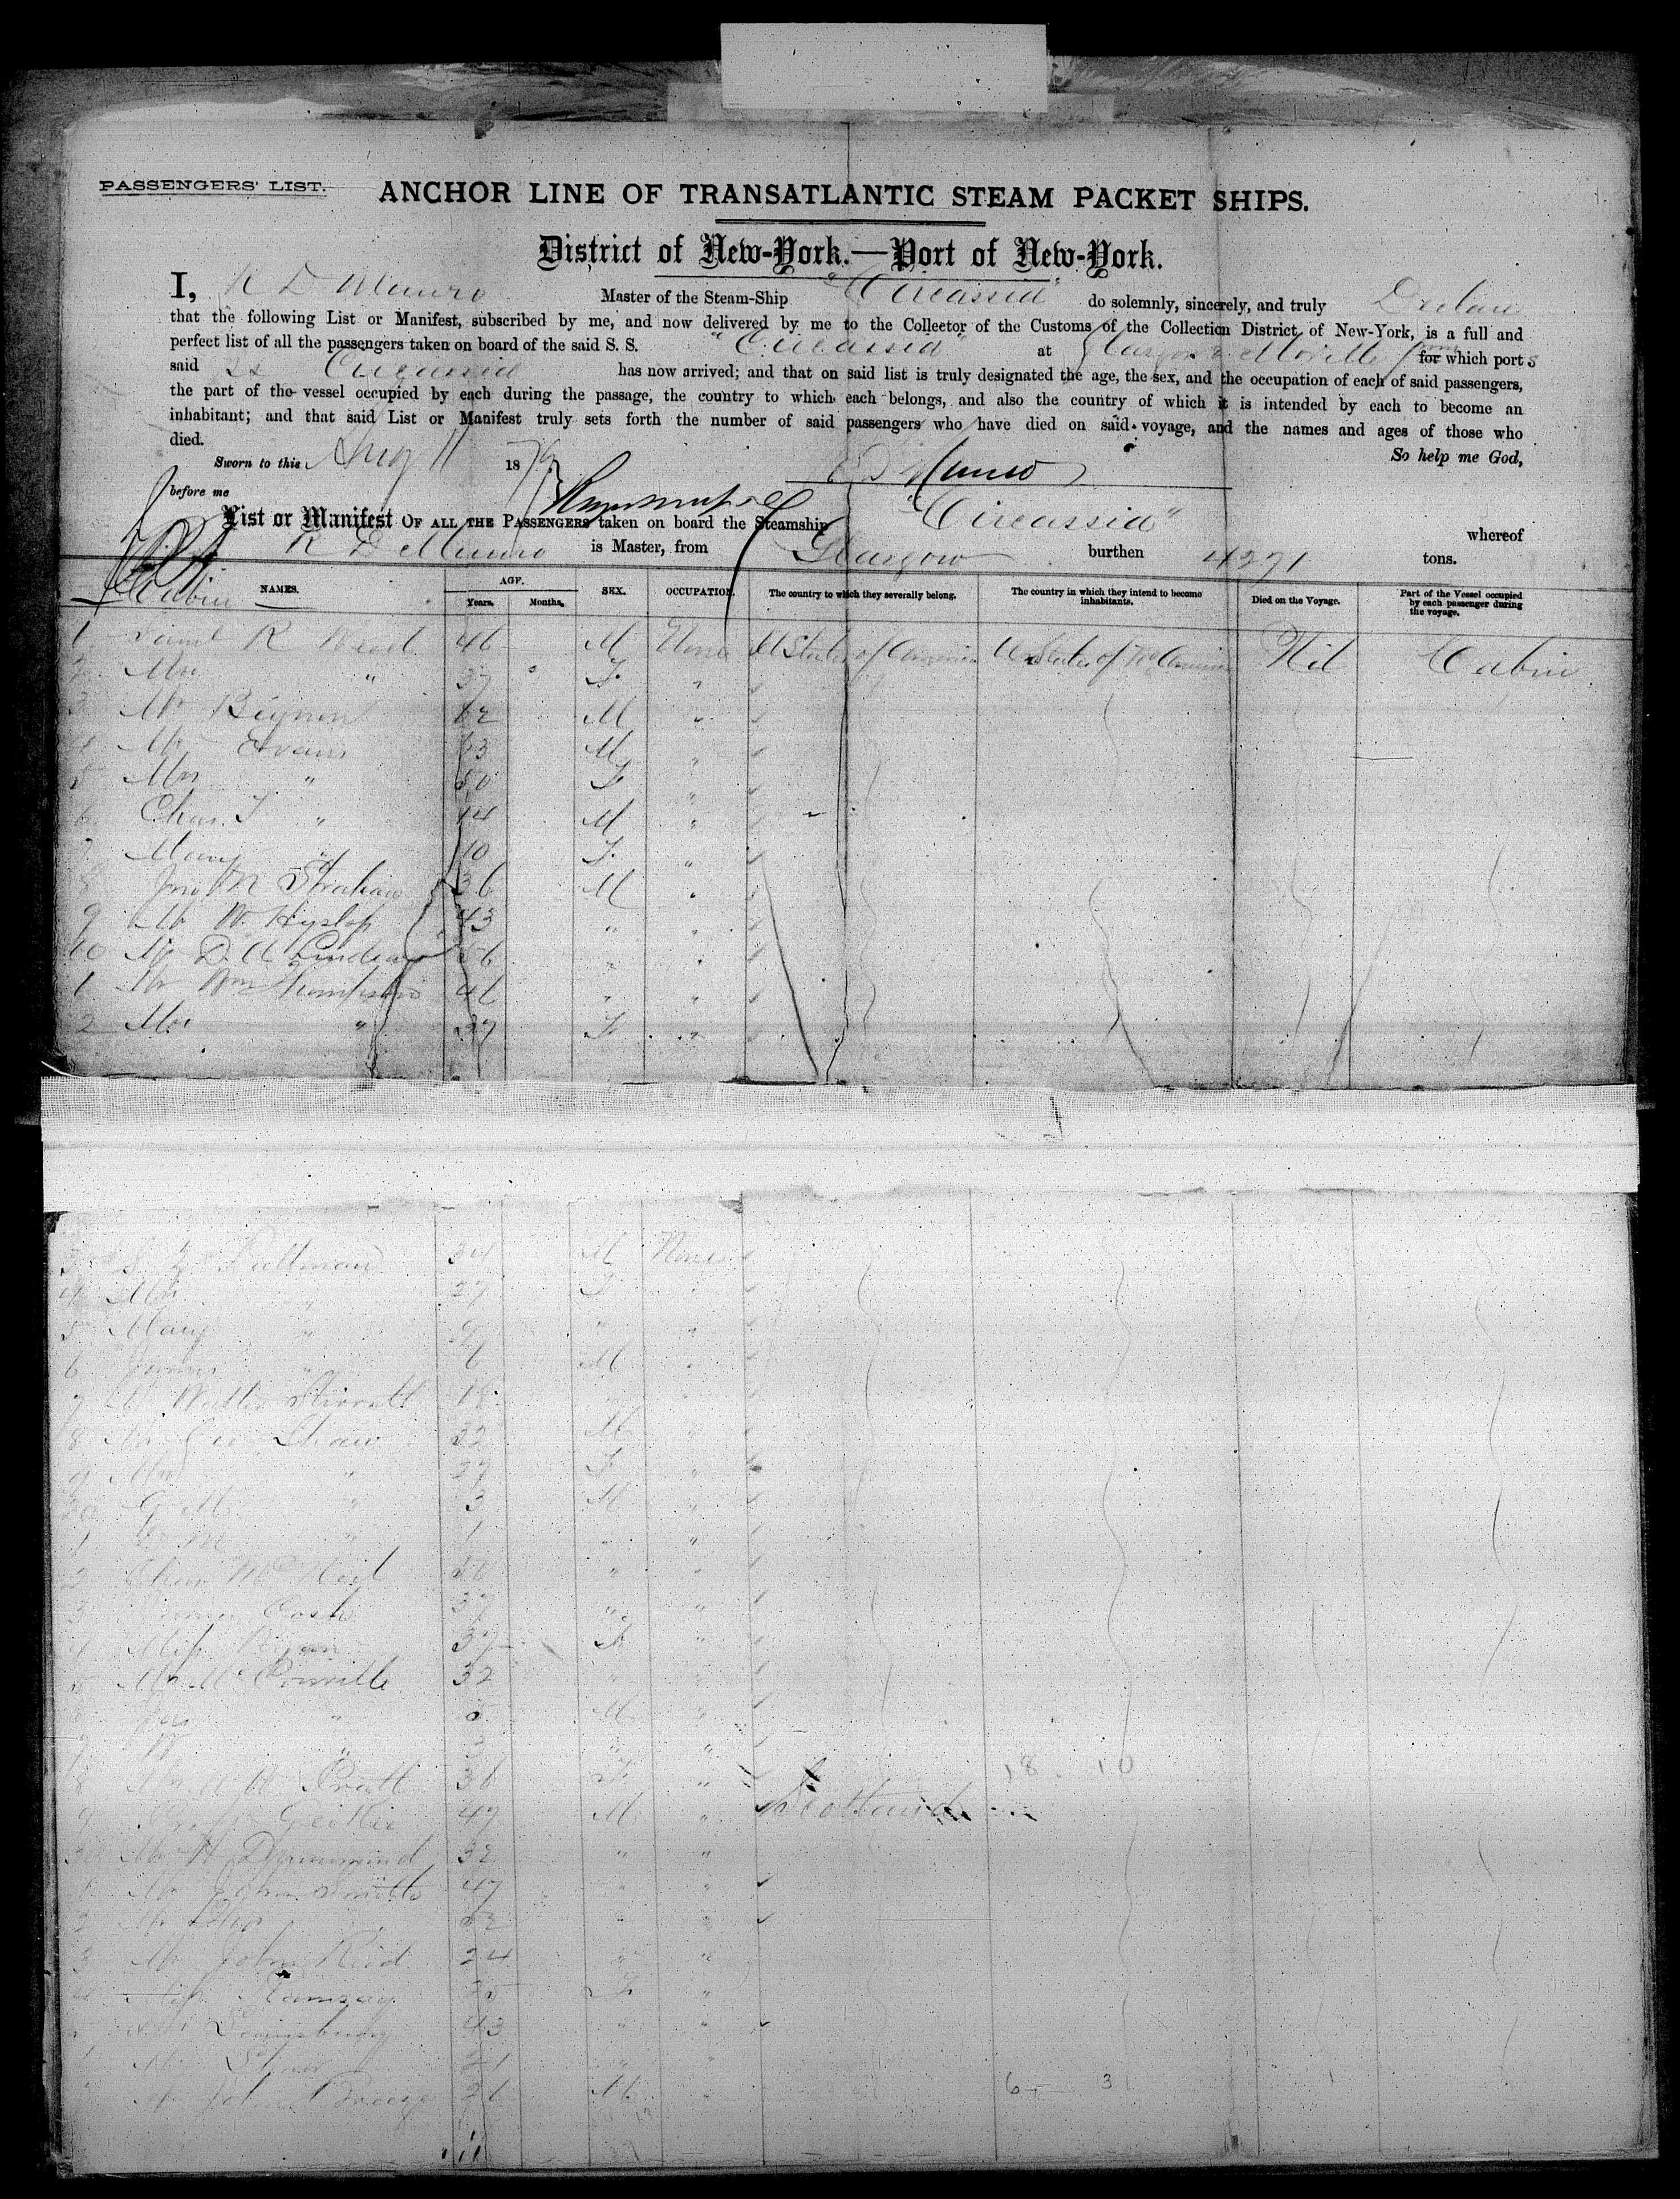 PASSENGERS' LIST.
ANCHOR LINE OF TRANSATLANTIC STEAM PACKET SHIPS.
District of New-York.—Port of New-York.
I, R D Munro Master of the Steam-Ship "Circassia" do solemnly, sincerely, and truly Declare
that the following List or Manifest, subscribed by me, and now delivered by me to the Collector of the Customs of the Collection District of New-York, is a full and
perfect list of all the passengers taken on board of the said S. S. "Circassia" at Glasgow & Moville from for which ports
said SS Circassia has now arrived; and that on said list is truly designated the age, the sex, and the occupation of each of said passengers,
the part of the vessel occupied by each during the passage, the country to which each belongs, and also the country of which it is intended by each to become an
inhabitant; and that said List or Manifest truly sets forth the number of said passengers who have died on said voyage, and the names and ages of those who
died.
So help me God,
Sworn to this Aug 11 1879
R D Munro
before me
List or Manifest OF ALL THE PASSENGERS taken on board the Steamship "Circassia" whereof
R D Munro is Master, from Glasgow burthen 4271 tons.
Cabin
NAMES. AGE. Years. Months. SEX. OCCUPATION. The country to which they severally belong. The country in which they intend to become inhabitants. Died on the Voyage. Part of the Vessel occupied by each passenger during the voyage.
1 R Weed 46 M None U States of America U States of America Nil Cabin
2 Mrs " 37 F "
3 Mr Beynon 62 M "
4 Mr Evans 53 M "
5 Mrs " 50 F "
6 Chas. T " 14 M "
7 Mary " 10 F "
8 Jno M Strahan 36 M "
9 Mr W. Hyslop 43 " "
10 Mr D. A Lindsay 56 " "
1 Mr Wm Thompson 46 " "
2 Mrs " 37 F "
3 Pullman 34 M None
4 Mrs " 27 F "
5 Mary " 9 " "
6 James " 6 M "
7 Walter Stirratt 18 "
8 Mr Geo Shaw 32 M "
9 Mrs " 27 F "
20 G M " 3 M "
1 " 1 " "
2 McNeil 50 " "
3 Cash 37 " "
4 Miss Ryan 37 F "
5 Mrs McConville 32 " "
6 Jas " 5 M "
7 W " 3 " "
18 10
8 Pratt 36 F "
9 Geikie 47 M " Scotland
30 Mr H Drummond 32 " "
1 Mr John Smith 47 " "
2 Mr 52 " "
3 Mr John Reid 24 " "
4 Miss Ramsay 25 F "
43 " "
21 " "
John Breeze 26 M "
6 3